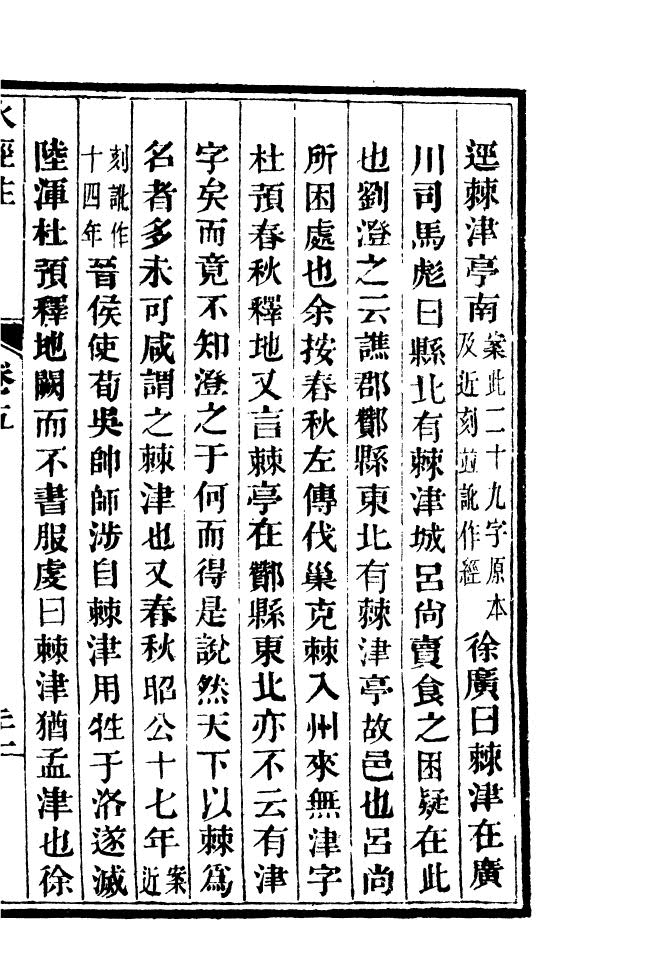 逕棘津亭南案此二十九字原本及近刻並訛作經徐廣曰棘津在廣
川司馬彪曰縣北有棘津城呂尚賣食之困疑在此
也劉澄之云譙郡酇縣東北有棘津亭故邑也呂尚
所困處也余按春秋左傳伐巢克棘入州來無津字
杜預春秋釋地又言棘亭在酇縣東北亦不云有津
字矣而竟不知澄之于何而得是說然天下以棘爲
名者多未可咸謂之棘津也又春秋昭公十七年案近
刻訛作十四年晉侯使荀吳帥師涉自棘津用牲于洛遂滅
陸渾杜預釋地闕而不書服虔曰棘津猶孟津也徐
水經注 卷五